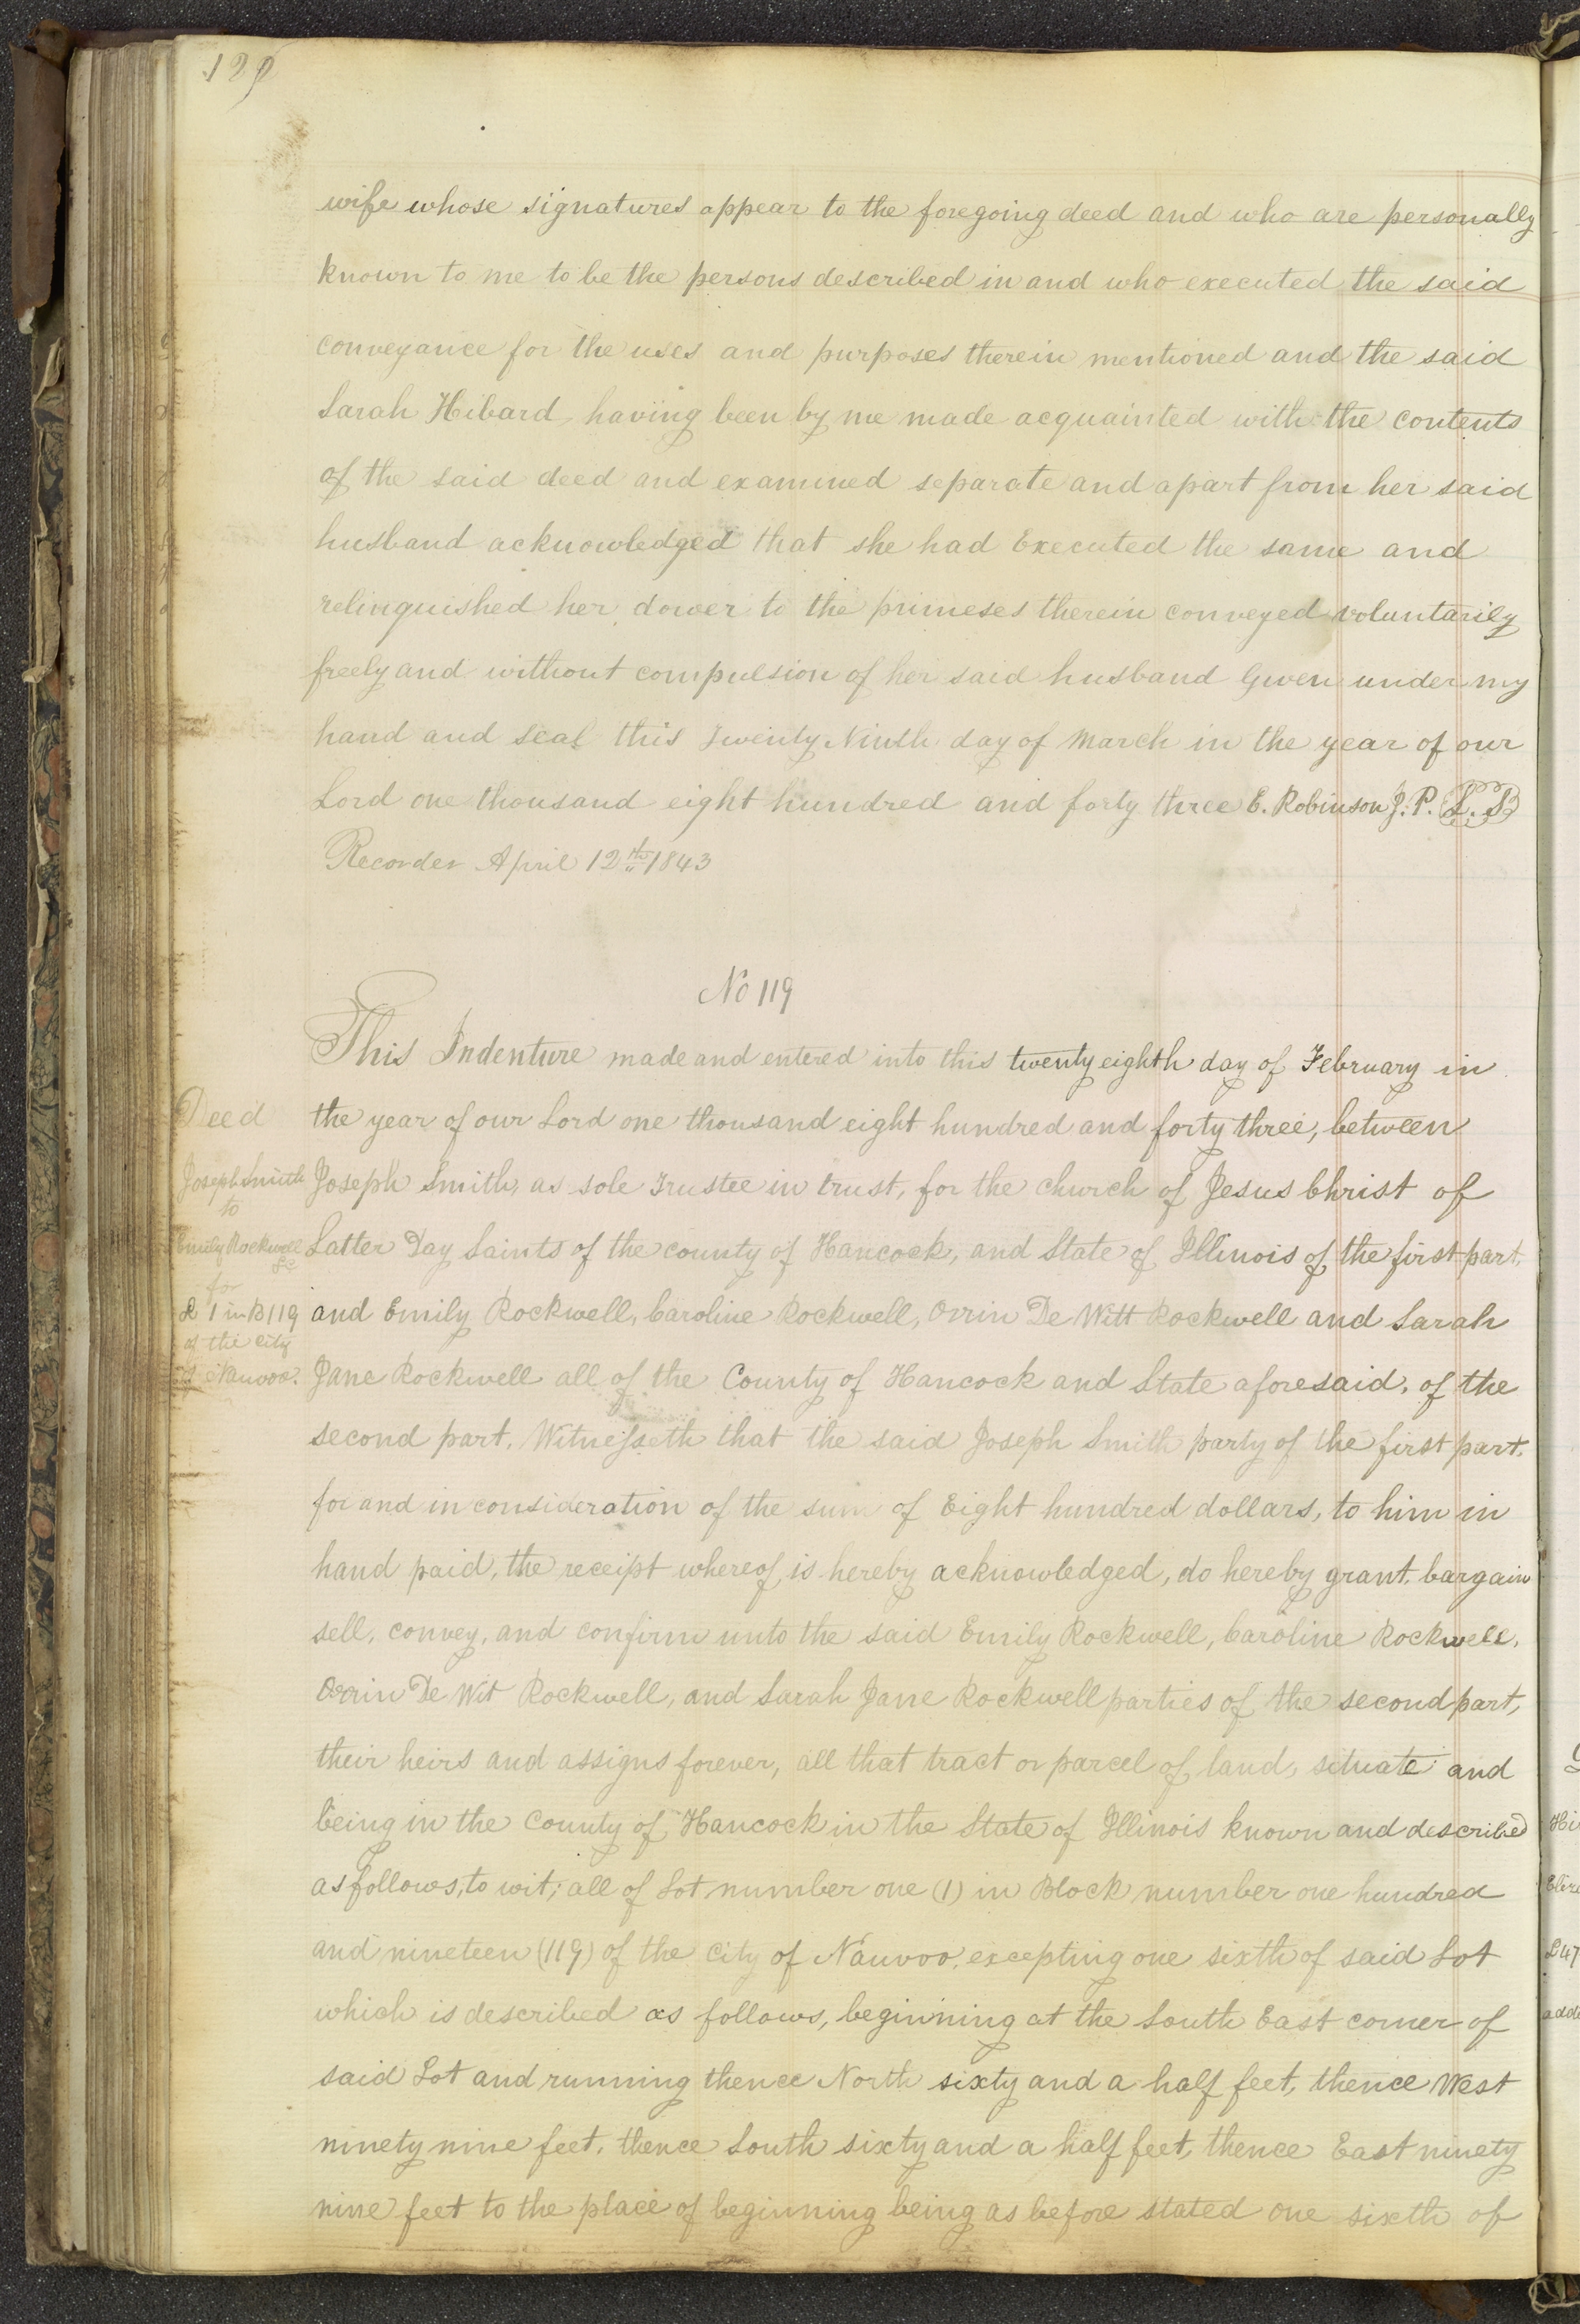 wife whose signatures appear to the foregoing deed and who are personally
known to me to be the persons described in and who executed the said
conveyance for the uses and purposes therein mentioned and the said
Sarah Hibard having been by me made acquainted with the contents
of the said deed and examined separate and apart from her said
husband acknowledged that she had Executed the same and
relinquished her dower to the primeses therein conveyed voluntarily
freely and without compulsion of her said husband Given under my
hand and seal this Twenty Ninth day of March in the year of our
Lord one thousand eight hundred and forty three E. Robinson J. P. L. S
Recorder April 12th 1843
No 119
This Indenture made and entered into this twenty eighth day of February in
Deed
the year of our Lord one thousand eight hundred and forty three, between
Joseph Smith
Joseph Smith, as sole Trustee in trust, for the church of Jesus Christ of
to
Emily Rockwell
Latter Day Saints of the county of Hancock, and State of Illinois of the first part,
&c
for
L 1 in B 119
and Emily Rockwell, Caroline Rockwell, Orrin De Witt Rockwell and Sarah
of the city
of Nauvoo.
Jane Rockwell all of the County of Hancock and State aforesaid, of the
second part, Witnesseth that the said Joseph Smith party of the first part,
for and in consideration of the sum of Eight hundred dollars, to him in
hand paid, the receipt whereof, is hereby acknowledged, do hereby grant, bargain
sell, convey, and confirm unto the said Emily Rockwell, Caroline Rockwell,
Orrin De Wit Rockwell, and Sarah Jane Rockwell parties of the second part,
their heirs and assigns forever, all that tract or parcel of land, situate and
being in the County of Hancock in the State of Illinois known and described
as follows, to wit; all of Lot number one (1) in Block number one hundred
and nineteen (119) of the City of Nauvoo, excepting one sixth of said Lot
which is described as follows, beginning at the South East corner of
said Lot and running thence North sixty and a half feet, thence West
ninety nine feet, thence South sixty and a half feet, thence East ninety
nine feet to the place of beginning being as before stated one sixth of